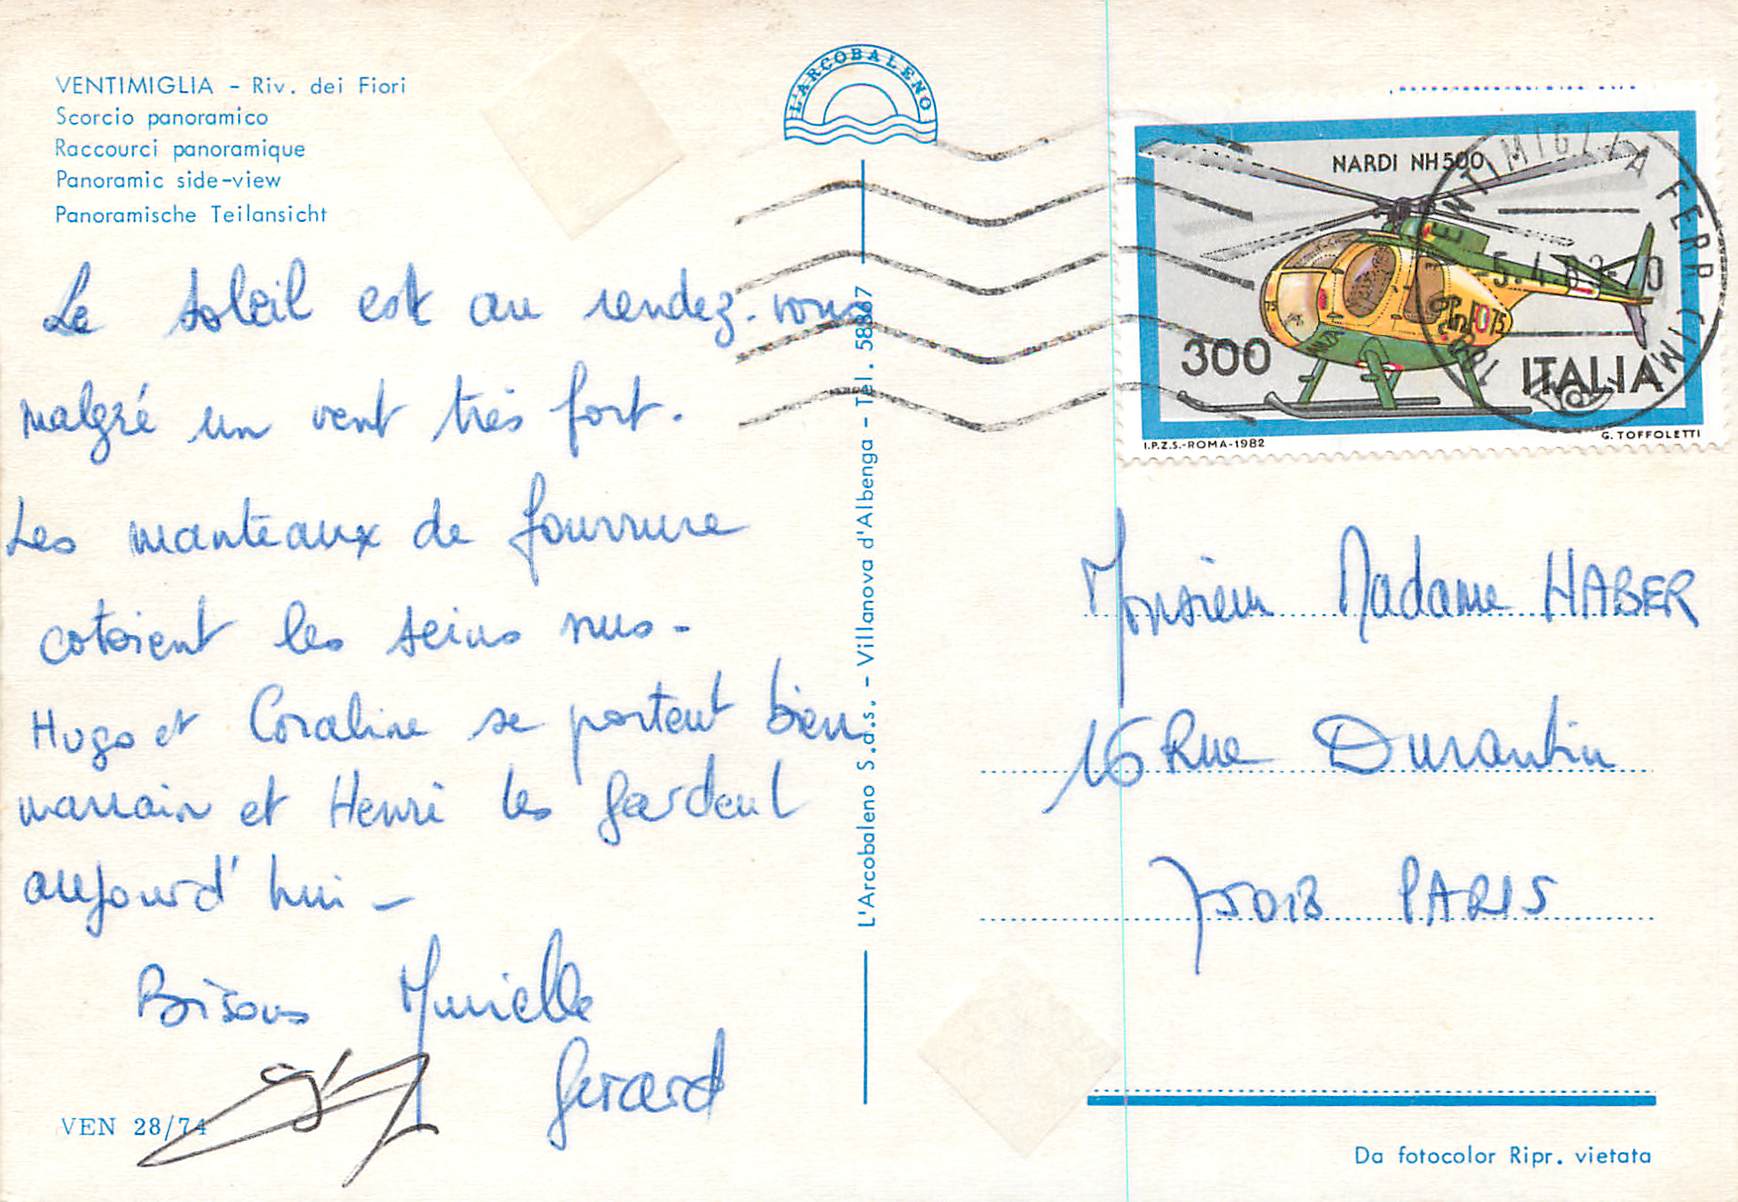 VENTIMIGLIA - Riv. dei Fiori
Scorcio panoramico
Raccourci panoramique
Panoramic side-view
Panoramische Teilansicht
Le soleil est au rendez-vous
malgré un vent très fort.
Les manteaux de fourrure
cotoient les seins nus -
Hugo et Coraline se portent bien
marrain et Henri les gardent
aujourd'hui -
Bisous Murielle
Gerard
VEN 28/74
L'ARCOBALENO
L'Arcobaleno S.d.s. - Villanova d'Albenga - Tel. 58887
NARDI NH500
300
ITALIA
I.P.Z.S.-ROMA-1982
G. TOFFOLETTI
VENTIMIGLIA FERR CIM
Monsieur Madame HABER
16 Rue Durantin
75018 PARIS
Da fotocolor Ripr. vietata